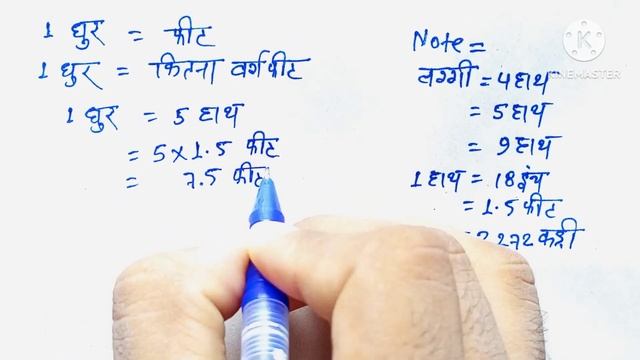 1 धुर = फीट
1 धुर = कितना वर्ग फीट
1 धुर = 5 हाथ
= 5 × 1.5 फीट
= 7.5 फीट
Note =
लग्गी = 4 हाथ
= 5 हाथ
= 9 हाथ
1 हाथ = 18 इंच
= 1.5 फीट
= 2.272 कड़ी
KINEMASTER